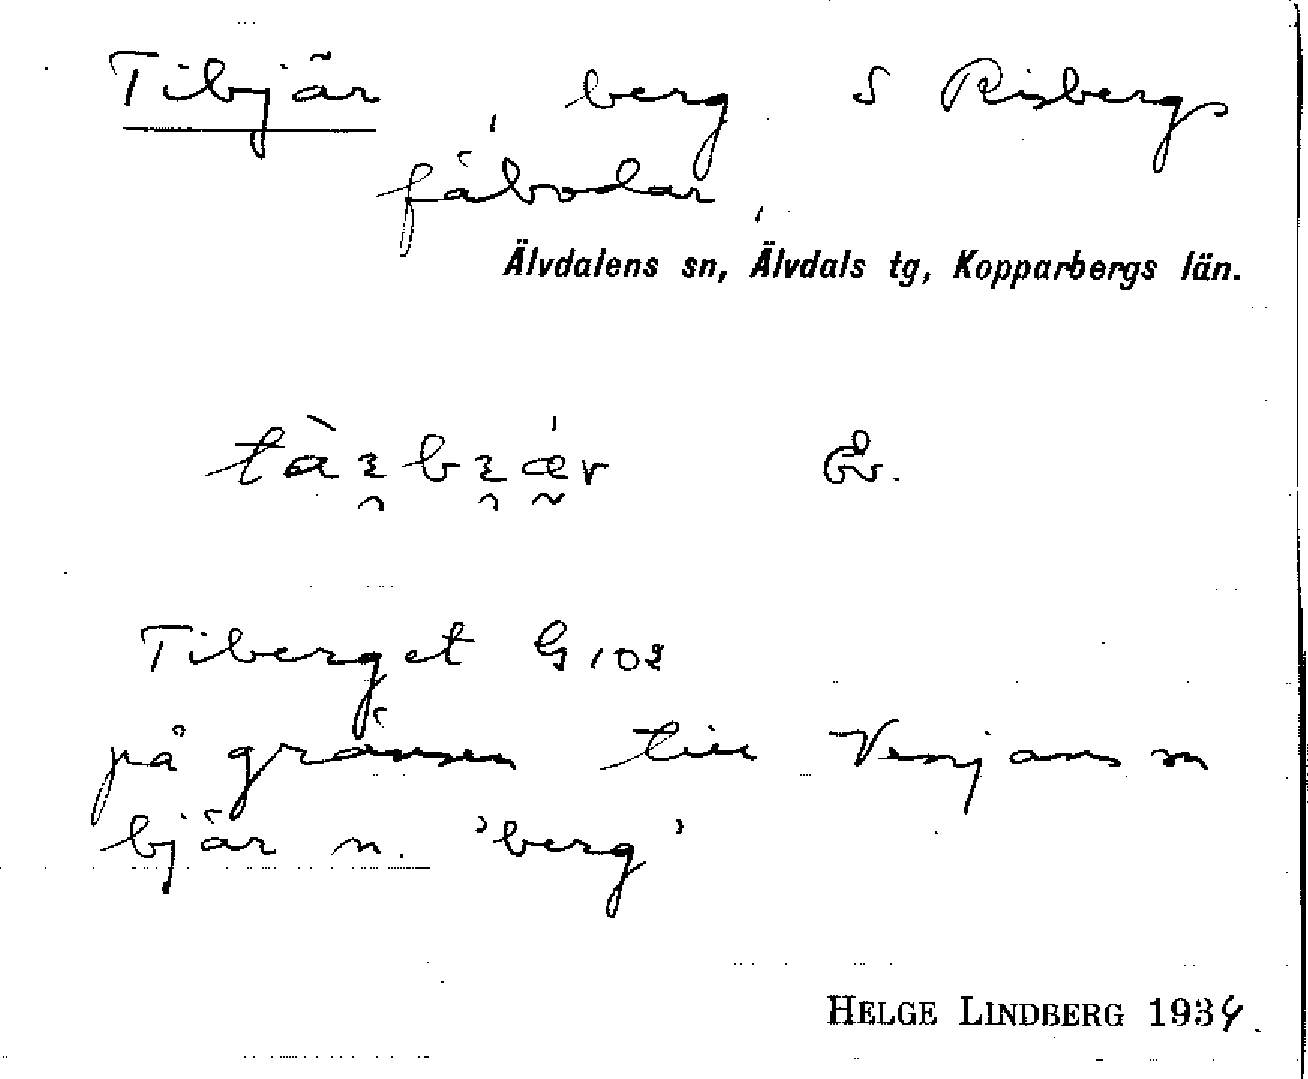 Tibjär, berg S Risbergs
fäbodar,
Älvdalens sn, Älvdals tg, Kopparbergs län.
Tiberget G 102
på gränsen till Venjans sn
bjär n. 'berg'
HELGE LINDBERG 1934.